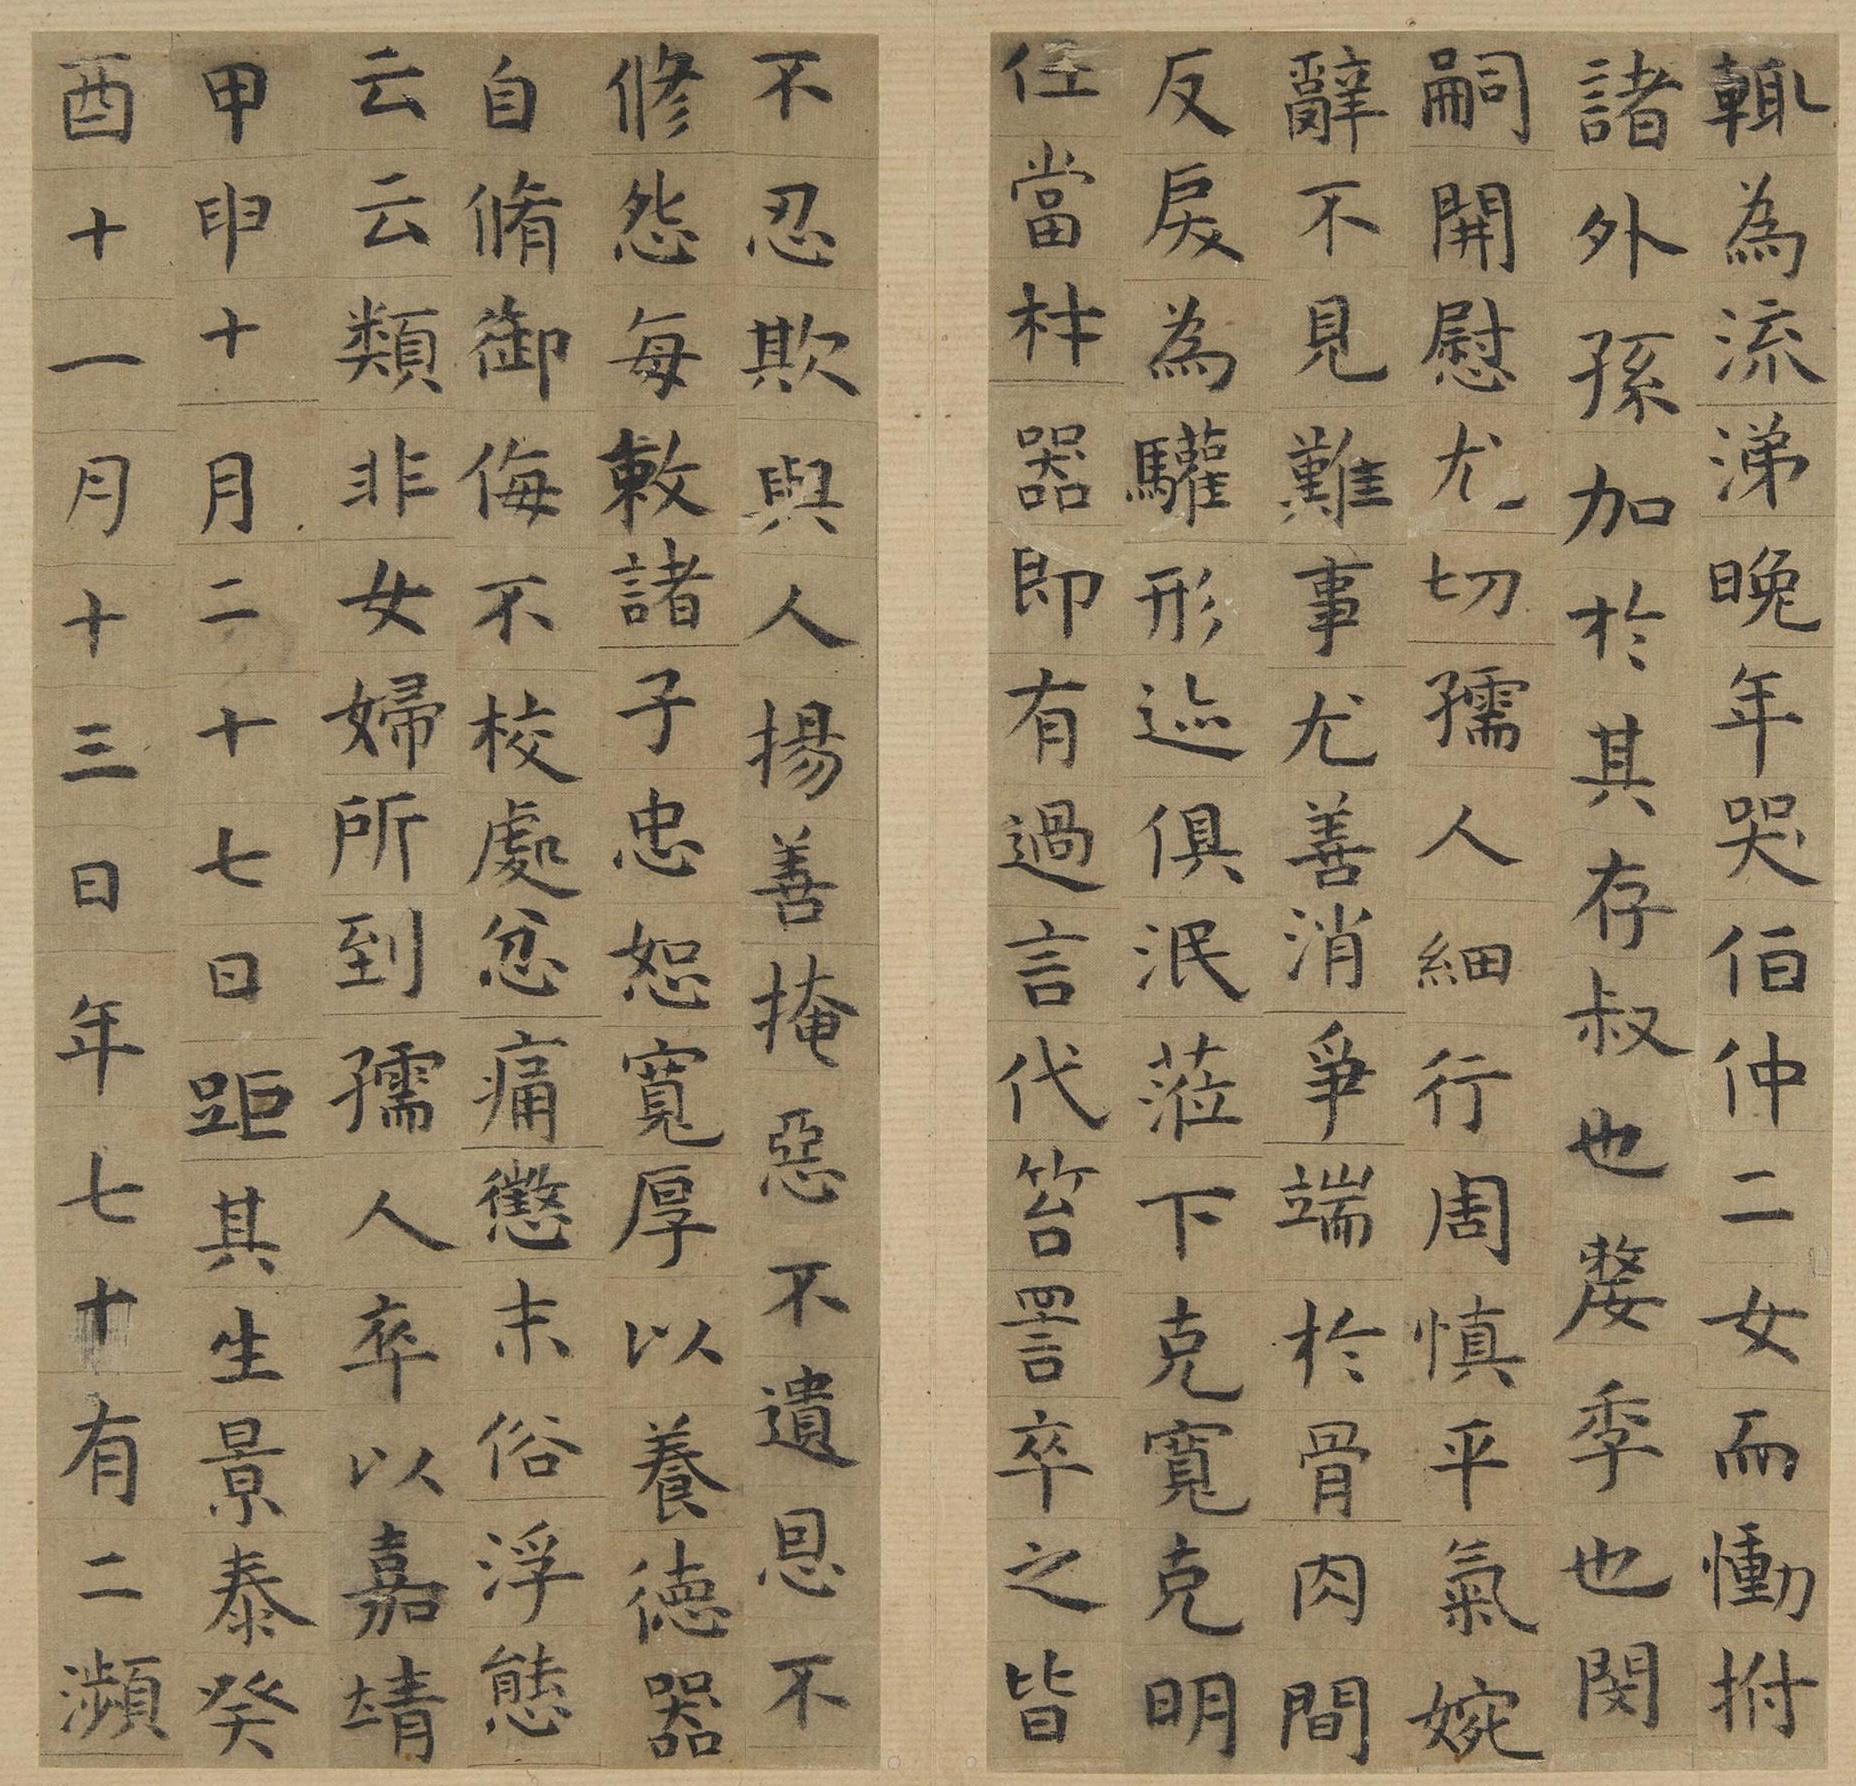 輙為流涕晚年哭伯仲二女而慟拊
諸外孫加於其存叔也嫠季也閔
嗣開慰尤切孺人細行周慎平氣婉
辭不見難事尤善消爭端於骨肉間
反戾為驩形迹俱泯蒞下克寬克明
任當材器即有過言代笞詈卒之皆
不忍欺與人揚善掩惡不遺恩不
修怨每敕諸子忠恕寬厚以養德器
自脩御侮不校處忿痛懲末俗浮態
云云類非女婦所到孺人卒以嘉靖
甲申十月二十七日距其生景泰癸
酉十一月十三日年七十有二瀕